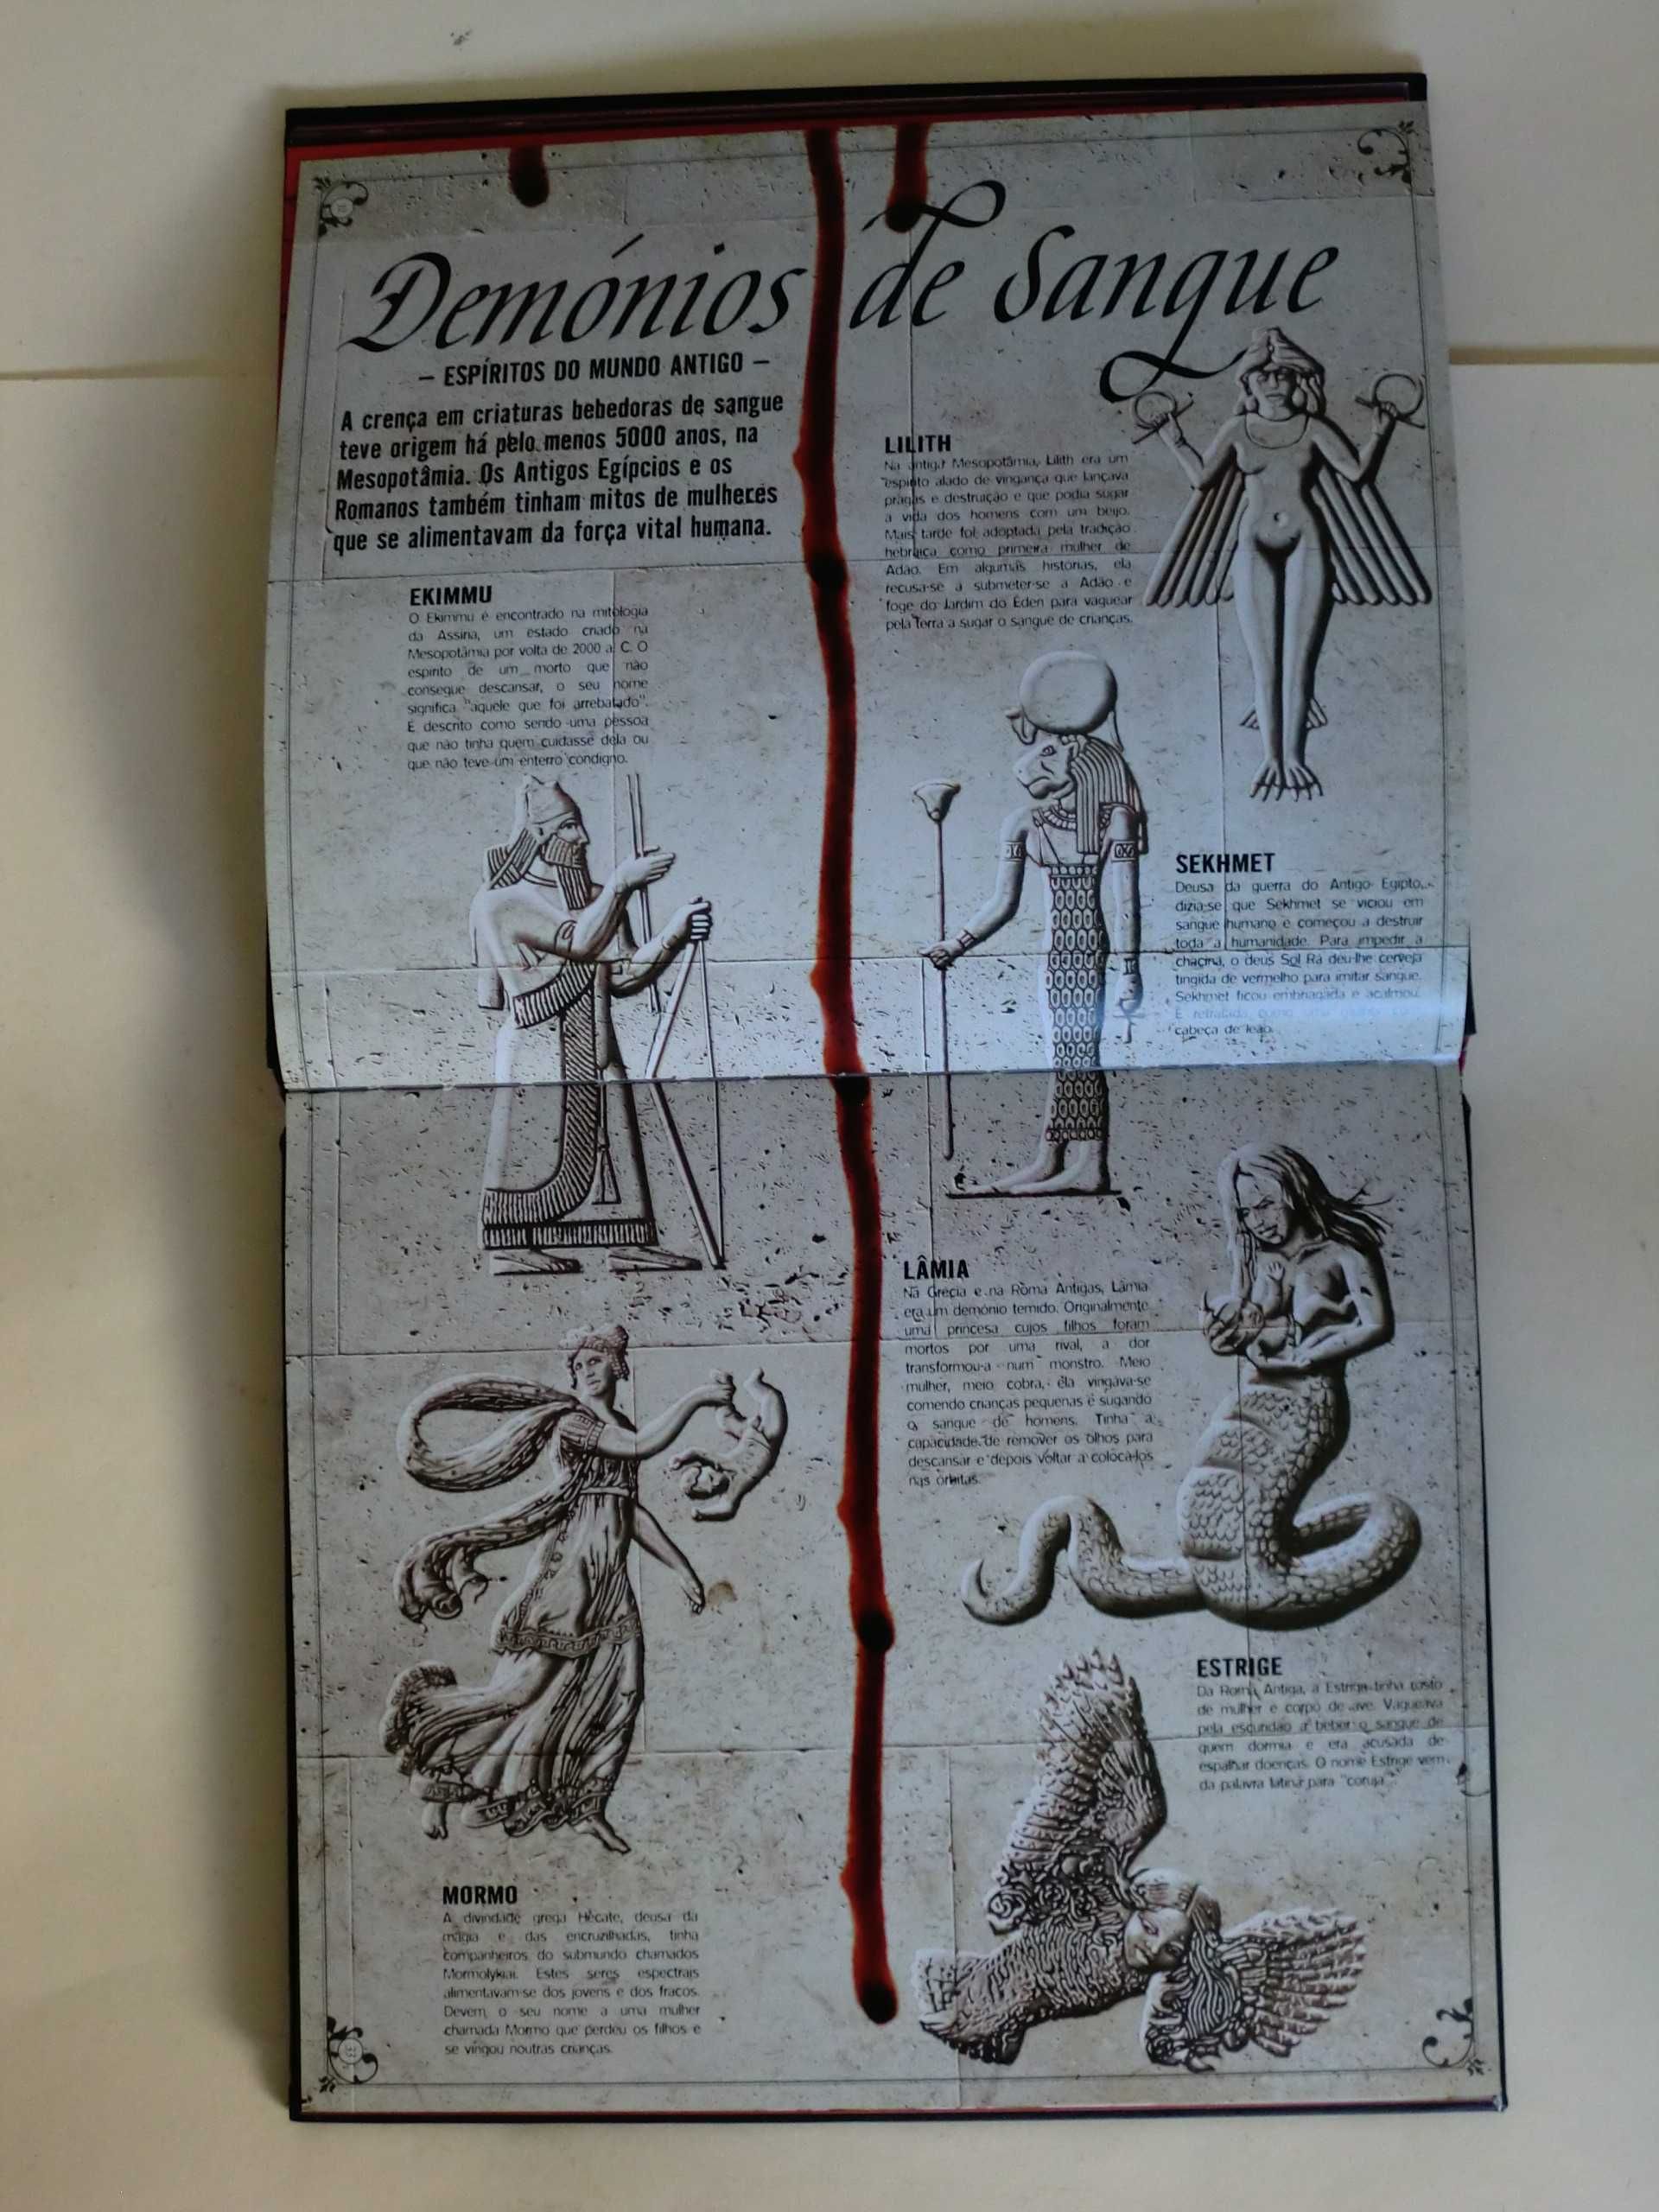 Demónios de Sangue
– ESPÍRITOS DO MUNDO ANTIGO –
A crença em criaturas bebedoras de sangue
teve origem há pelo menos 5000 anos, na
Mesopotâmia. Os Antigos Egípcios e os
Romanos também tinham mitos de mulheres
que se alimentavam da força vital humana.
EKIMMU
O Ekimmu é encontrado na mitologia
da Assíria, um estado criado na
Mesopotâmia por volta de 2000 a. C. O
espírito de um morto que não
consegue descansar, o seu nome
significa "aquele que foi arrebatado".
É descrito como sendo uma pessoa
que não tinha quem cuidasse dela ou
que não teve um enterro condigno.
LILITH
Na antiga Mesopotâmia, Lilith era um
espírito alado de vingança que lançava
pragas e destruição e que podia sugar
a vida dos homens com um beijo.
Mais tarde foi adoptada pela tradição
hebraica como primeira mulher de
Adão. Em algumas histórias, ela
recusa-se a submeter-se a Adão e
foge do Jardim do Éden para vaguear
pela Terra a sugar o sangue de crianças.
SEKHMET
Deusa da guerra do Antigo Egipto,
dizia-se que Sekhmet se viciou em
sangue humano e começou a destruir
toda a humanidade. Para impedir a
chacina, o deus Sol Rá deu-lhe cerveja
tingida de vermelho para imitar sangue.
Sekhmet ficou embriagada e acalmou.
É retratada como uma
cabeça de leão.
LÂMIA
Na Grécia e na Roma Antigas, Lâmia
era um demónio temido. Originalmente
uma princesa cujos filhos foram
mortos por uma rival, a dor
transformou-a num monstro. Meio
mulher, meio cobra, ela vingava-se
comendo crianças pequenas e sugando
o sangue de homens. Tinha a
capacidade de remover os olhos para
descansar e depois voltar a colocá-los
nas órbitas.
ESTRIGE
Da Roma Antiga, a Estrige tinha rosto
de mulher e corpo de ave. Vagueava
pela escuridão a beber o sangue de
quem dormia e era acusada de
espalhar doenças. O nome Estrige vem
da palavra latina para "coruja".
MORMO
A divindade grega Hécate, deusa da
magia e das encruzilhadas, tinha
companheiros do submundo chamados
Mormolykiai. Estes seres espectrais
alimentavam-se dos jovens e dos fracos.
Devem o seu nome a uma mulher
chamada Mormo que perdeu os filhos e
se vingou noutras crianças.